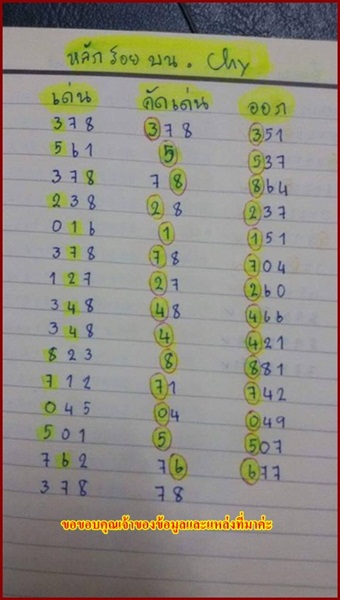 หลักร้อย บน . Chy
เด่น คัดเด่น ออก
378 378 351
561 5 537
378 78 864
238 28 237
016 1 151
378 78 704
127 27 260
348 48 466
348 4 421
823 8 881
712 71 742
045 04 049
501 5 507
762 76 677
378 78
ขอขอบคุณเจ้าของข้อมูลและแหล่งที่มาค่ะ